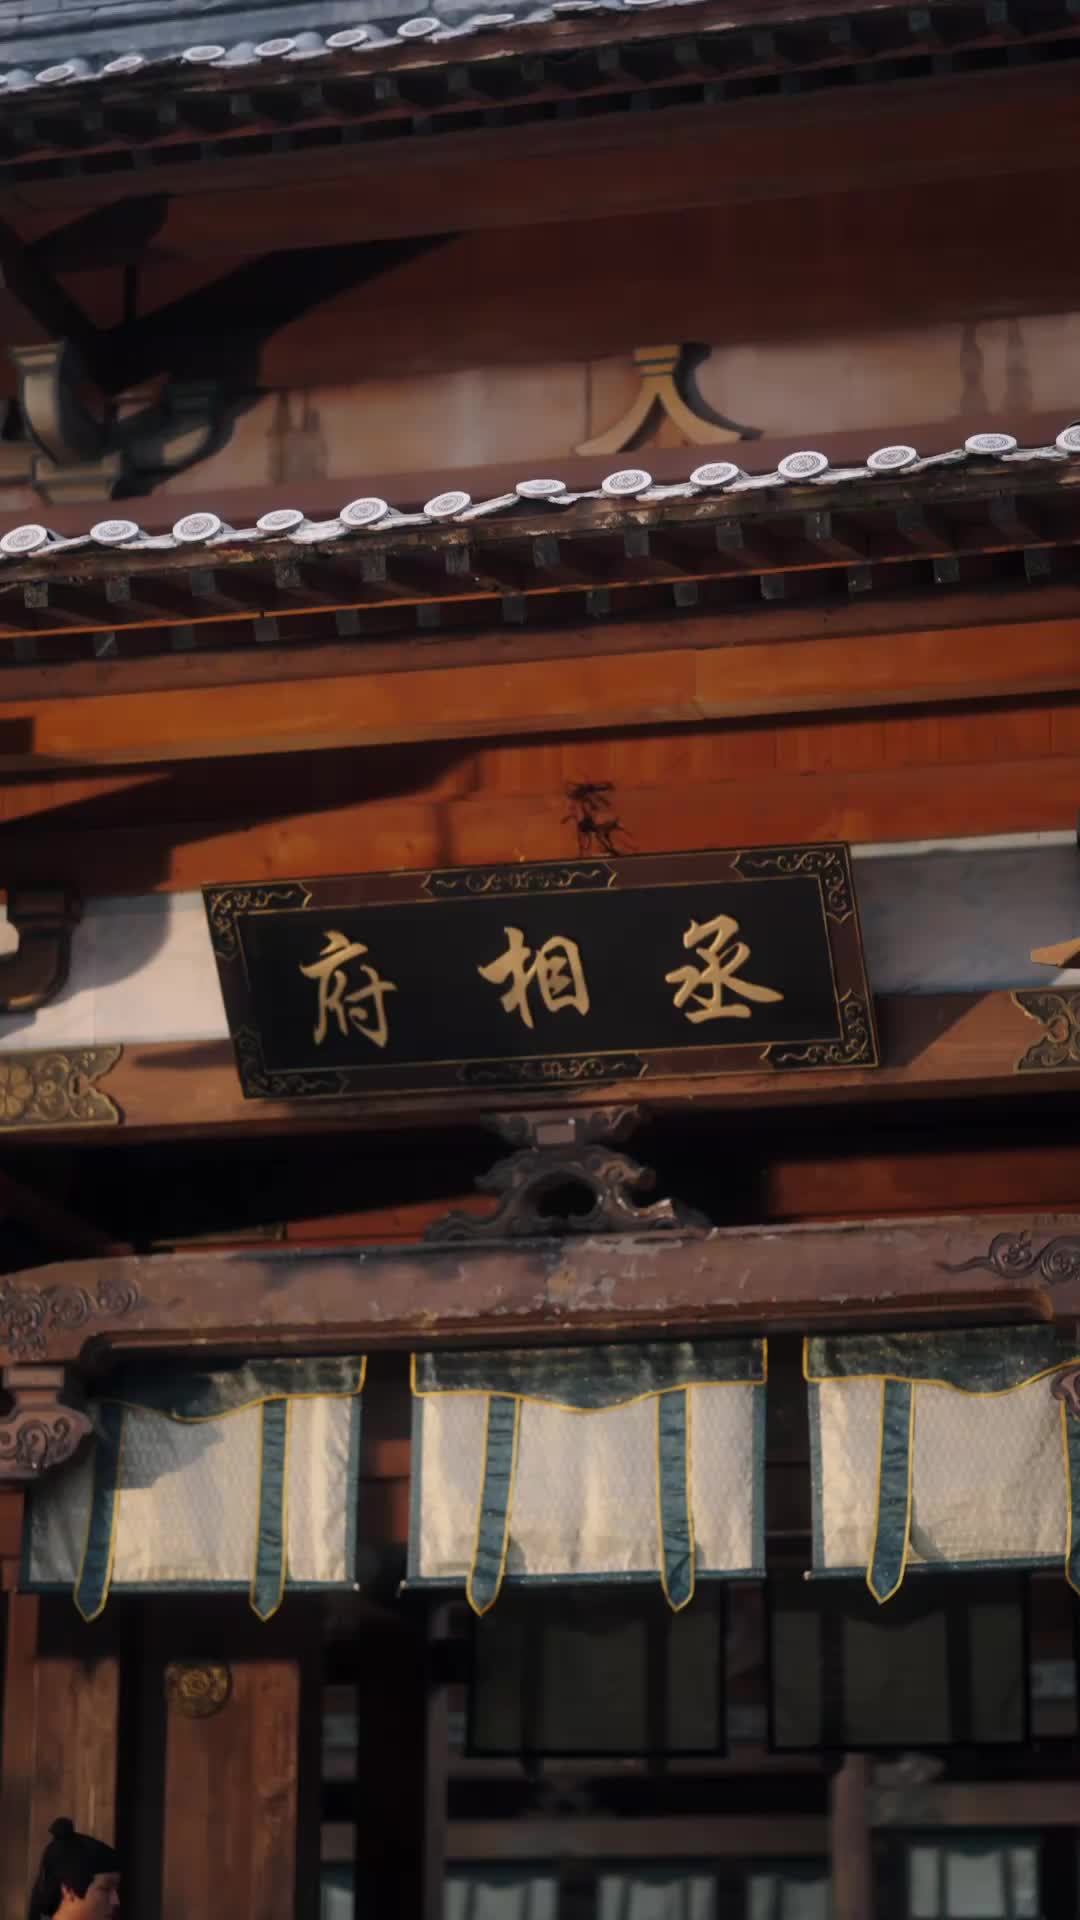 丞相府